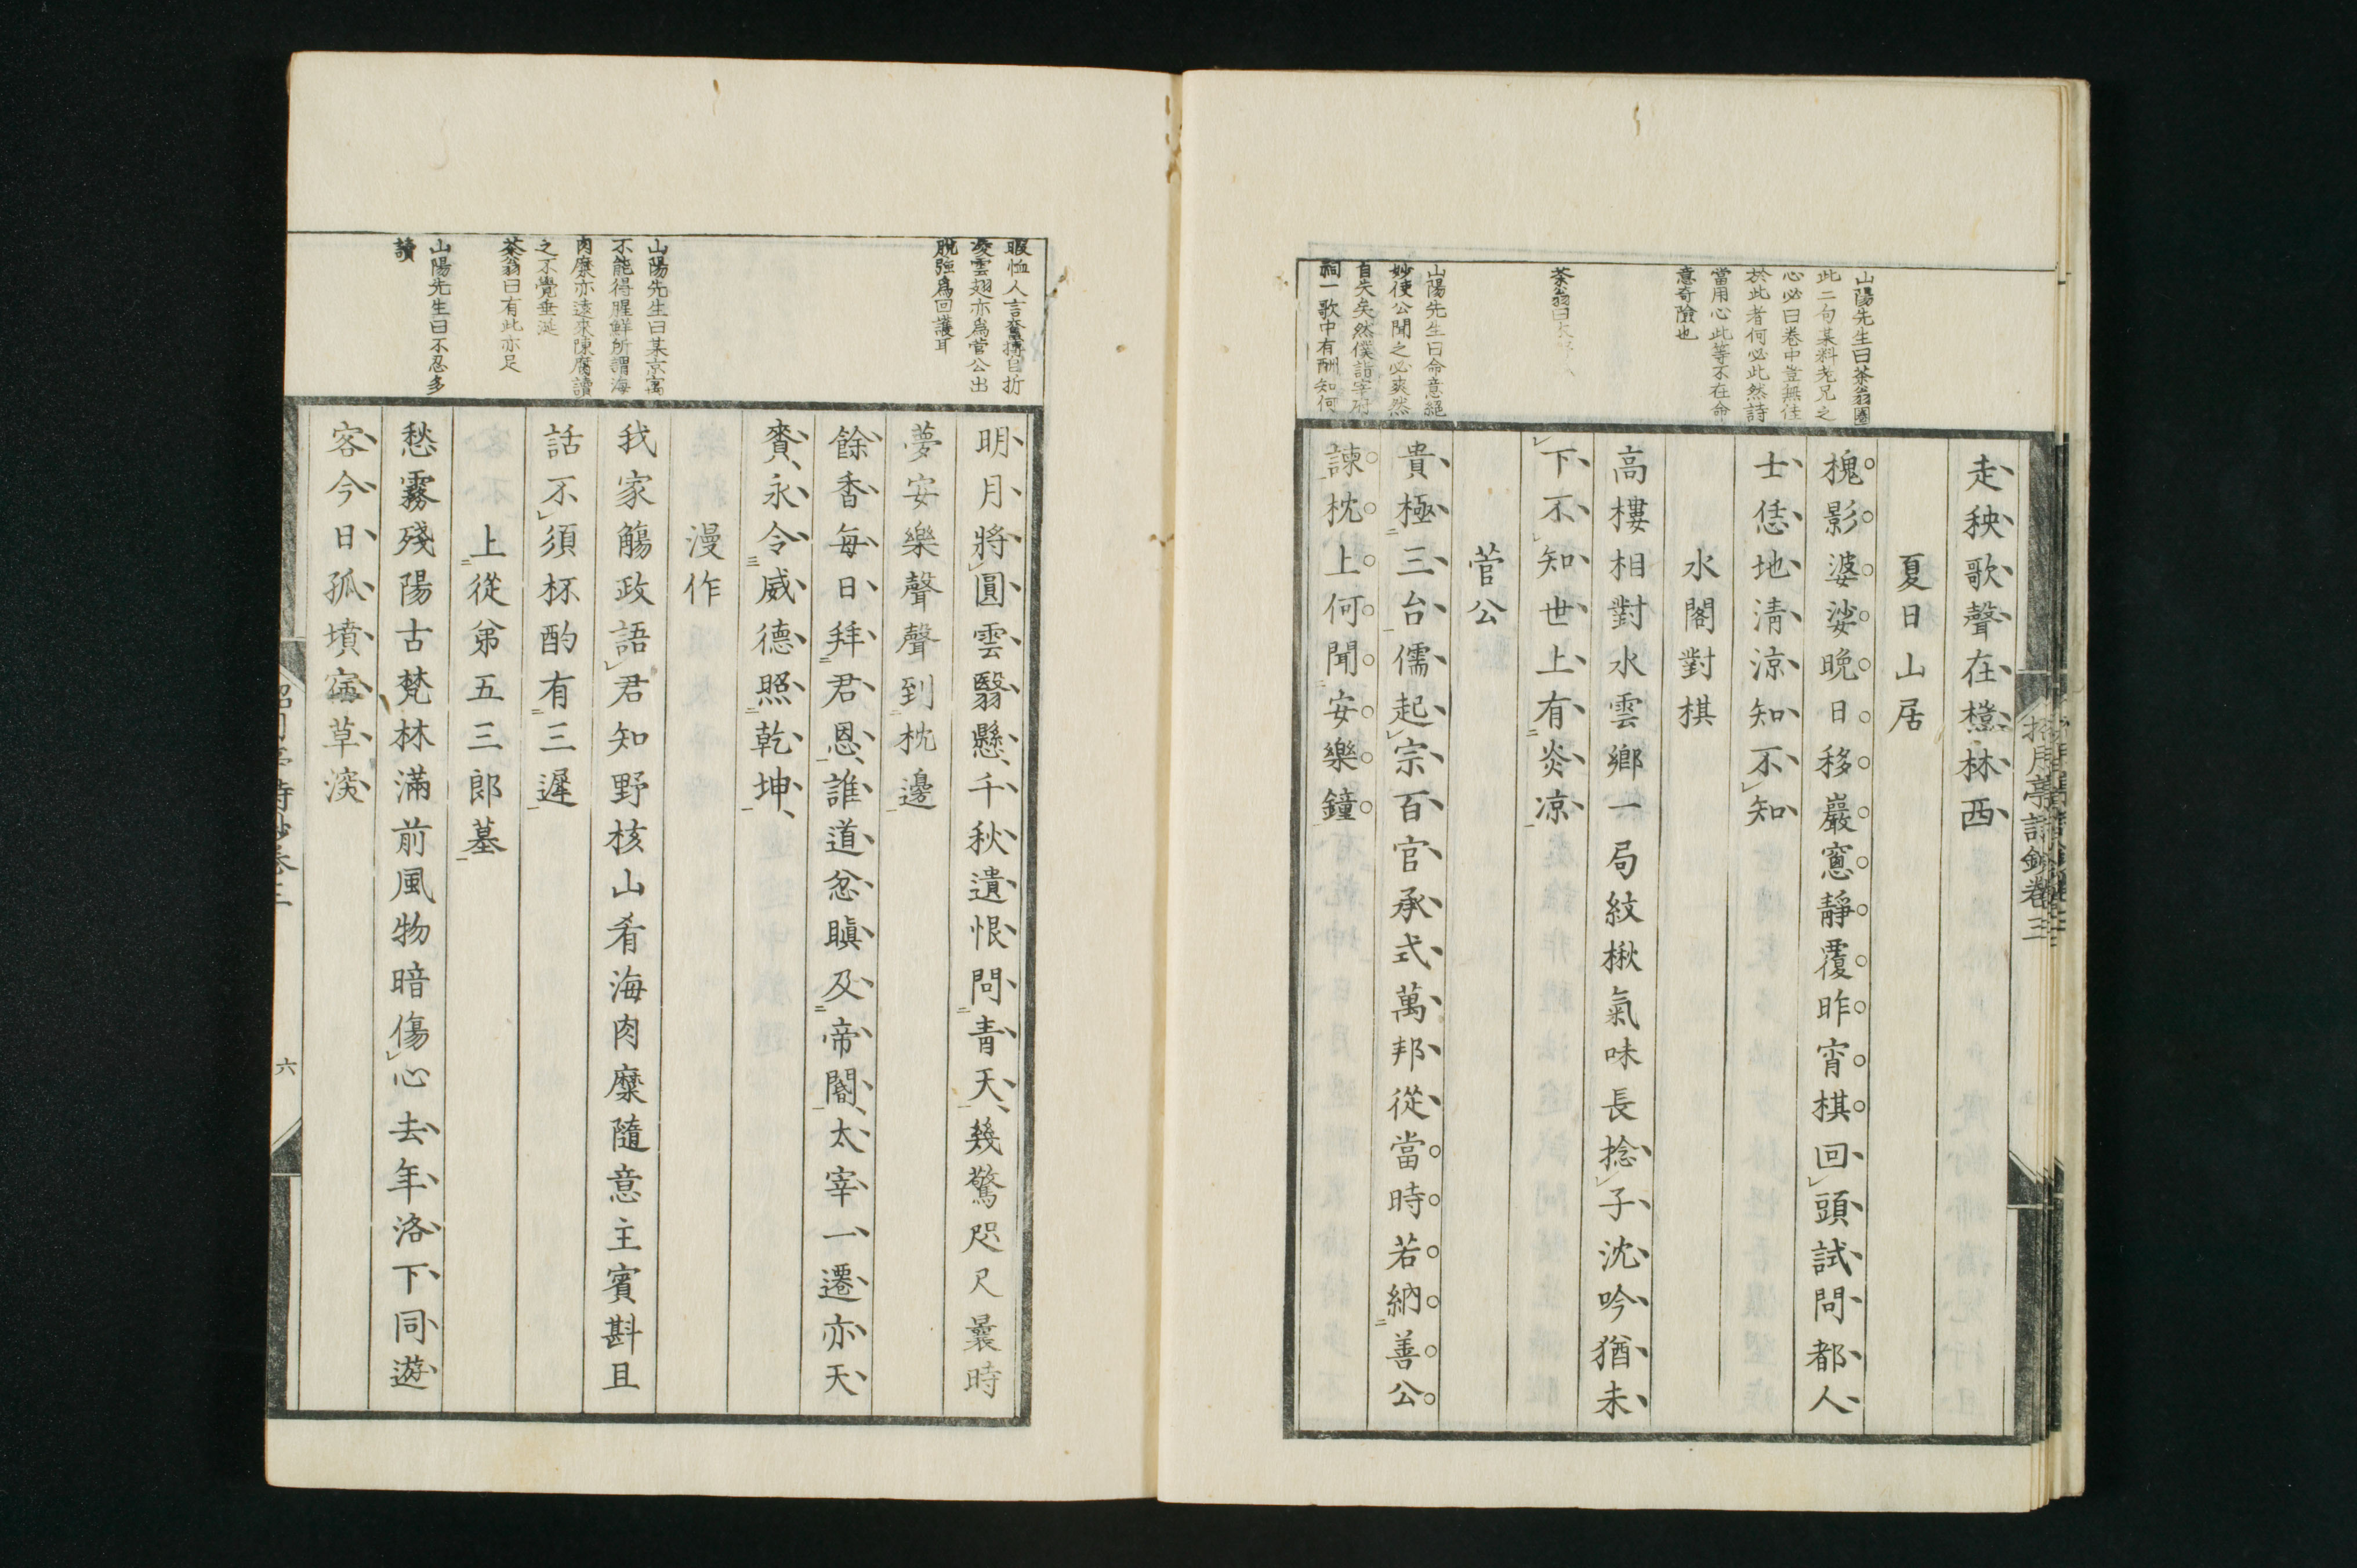 山陽先生曰茶翁圏
此二句某料老兄之
心必曰卷中豈無佳
於此者何必此然詩
當用心此等不在命
意奇險也
茶翁曰
山陽先生曰命意絕
妙使公聞之必爽然
自失矣然僕詣宰府
祠一歌中有酬知何
走秧歌聲在檍林西
夏日山居
槐影婆娑晚日移巖窻靜覆昨宵棋回頭試問都人
士恁地清涼知不知
水閣對棋
高樓相對水雲鄉一局紋楸氣味長捻子沈吟猶未
下不知世上有炎涼
菅公
貴極三台儒起宗百官承式萬邦從當時若納善公
諫枕上何聞安樂鐘
卷三
暇恤人言奮搏自折
凌雲翅亦爲菅公出
脫強爲回護耳
山陽先生曰某京寓
不能得腥鮮所謂海
肉糜亦遠來陳腐讀
之不覺垂涎
茶翁曰有此亦足
山陽先生曰不忍多
讀
明月將圓雲翳懸千秋遺恨問青天幾驚咫尺曩時
夢安樂聲聲到枕邊
餘香每日拜君恩誰道忿瞋及帝閽太宰一遷亦天
賚永令威德照乾坤
漫作
我家觴政語君知野核山肴海肉糜隨意主賓斟且
話不須杯酌有三遲
上從弟五三郎墓
愁霧殘陽古梵林滿前風物暗傷心去年洛下同遊
客今日孤墳宿草深
六